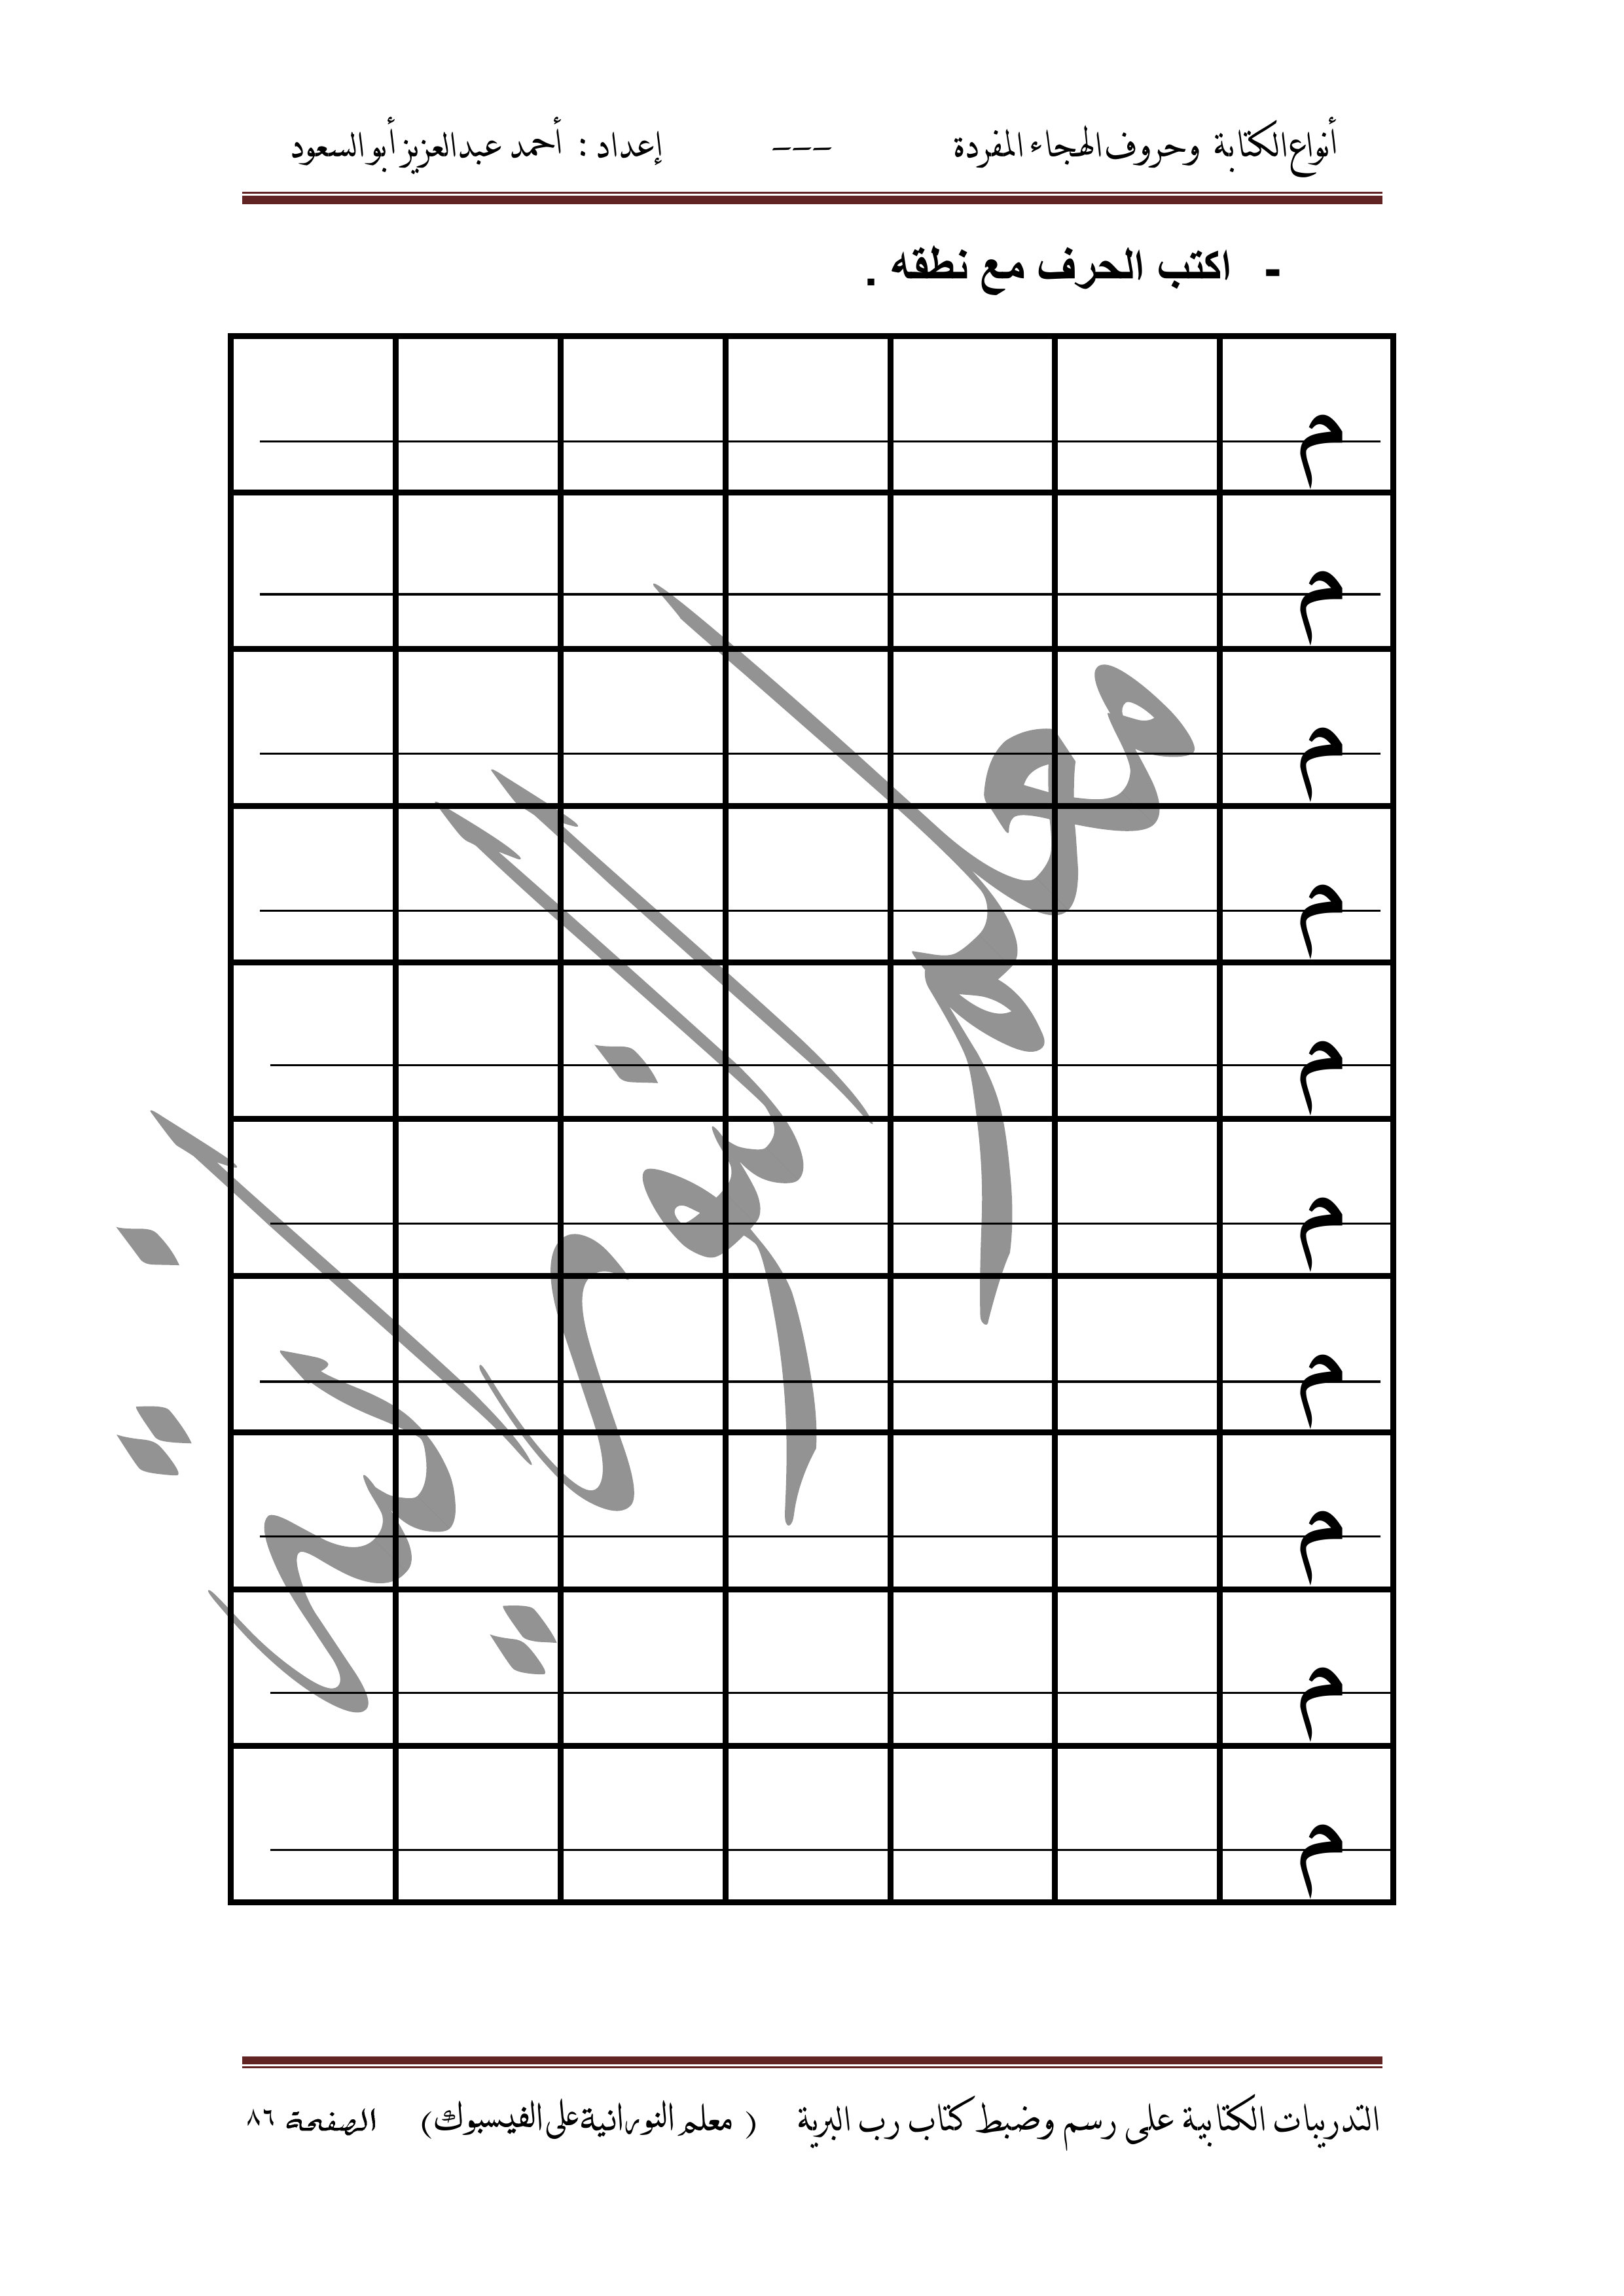 أنواع الكتابة وحروف الهجاء المفردة --- إعداد : أحمد عبدالعزيز أبو السعود
- اكتب الحرف مع نطقه .
م
م
م
م
م
م
م
م
م
م
معلم النورانية
التدريبات الكتابية على رسم وضبط كتاب رب البرية ( معلم النورانية على الفيسبوك) الصفحة ٨٦